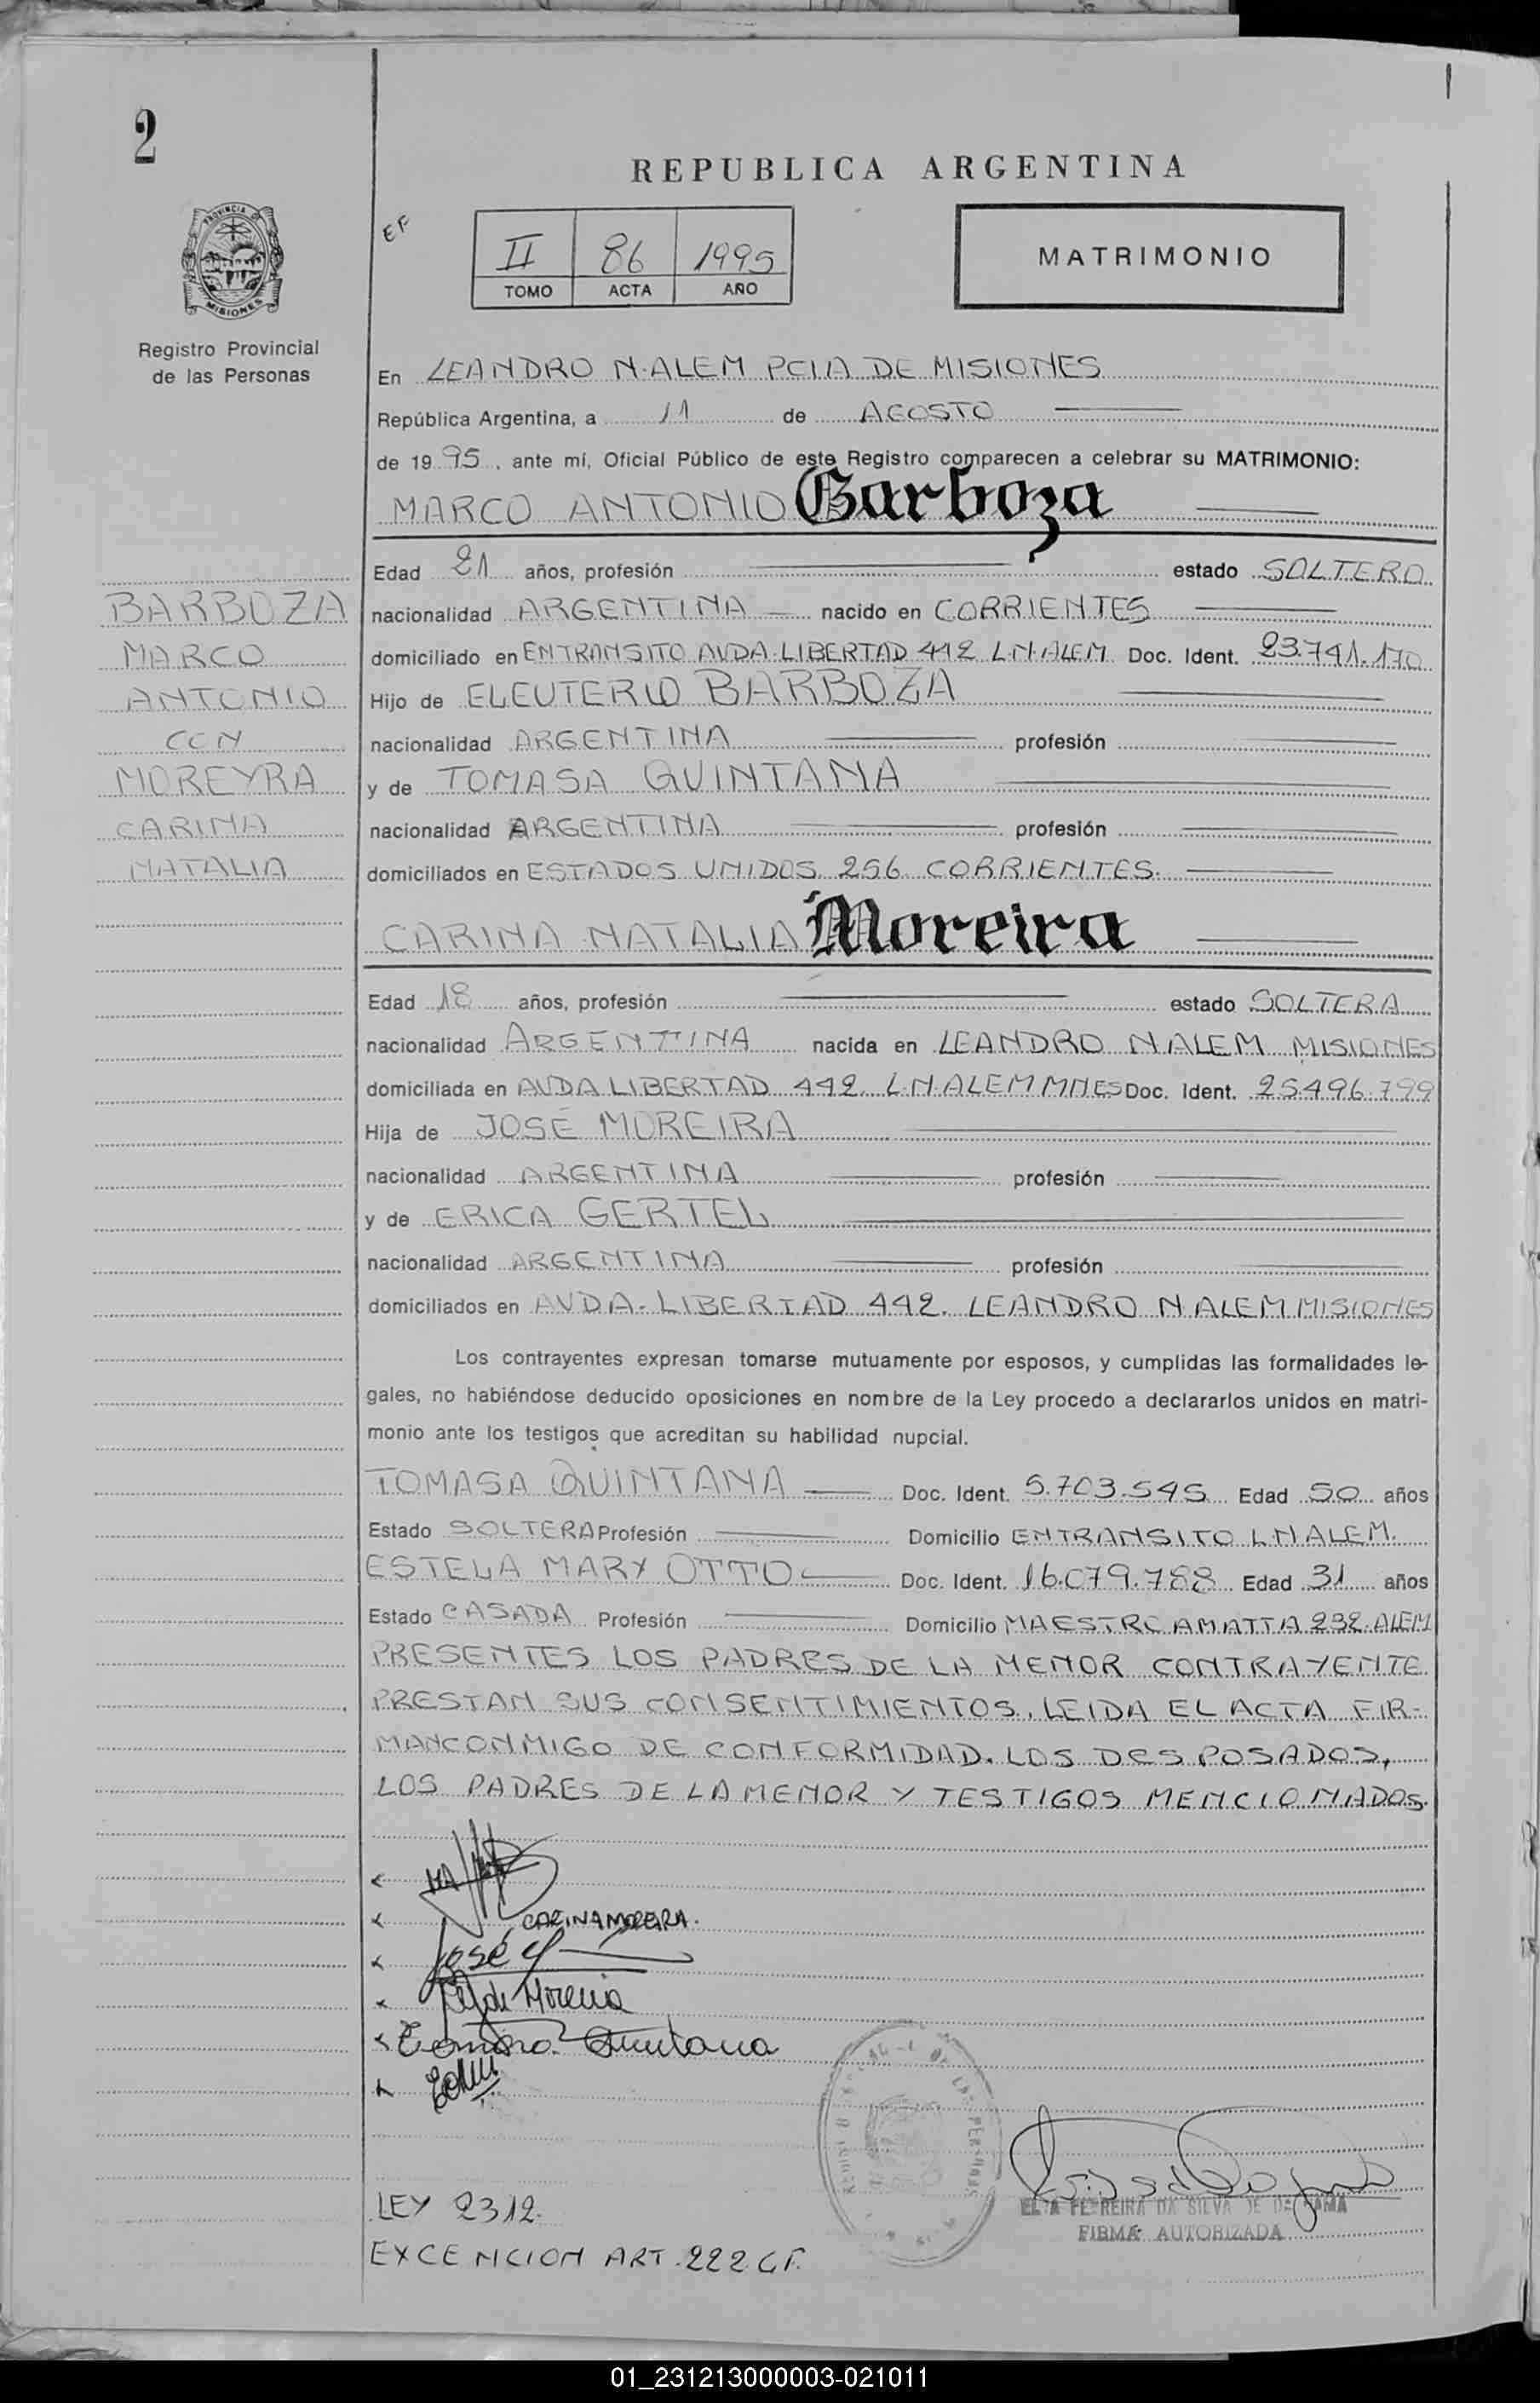 2
REPUBLICA ARGENTINA
EF
II 86 1995
TOMO ACTA AÑO
MATRIMONIO
PROVINCIA DE
MISIONES
Registro Provincial
de las Personas
En LEANDRO N. ALEM PCIA DE MISIONES
República Argentina, a 11 de AGOSTO
de 19 95, ante mí, Oficial Público de este Registro comparecen a celebrar su MATRIMONIO:
MARCO ANTONIO Barboza
Edad 21 años, profesión estado SOLTERO
nacionalidad ARGENTINA nacido en CORRIENTES
domiciliado en EN TRANSITO AVDA LIBERTAD 442 L.N.ALEM Doc. Ident. 23.741.170
Hijo de ELEUTERIO BARBOZA
nacionalidad ARGENTINA profesión
y de TOMASA QUINTANA
nacionalidad ARGENTINA profesión
domiciliados en ESTADOS UNIDOS 256 CORRIENTES.
BARBOZA
MARCO
ANTONIO
CON
MOREYRA
CARINA
NATALIA
CARINA NATALIA Moreira
Edad 18 años, profesión estado SOLTERA
nacionalidad ARGENTINA nacida en LEANDRO N ALEM MISIONES
domiciliada en AVDA LIBERTAD 442 L.N.ALEM MNES Doc. Ident. 25.496.799
Hija de JOSÉ MOREIRA
nacionalidad ARGENTINA profesión
y de ERICA GERTEL
nacionalidad ARGENTINA profesión
domiciliados en AVDA. LIBERTAD 442. LEANDRO N ALEM MISIONES
Los contrayentes expresan tomarse mutuamente por esposos, y cumplidas las formalidades le-
gales, no habiéndose deducido oposiciones en nombre de la Ley procedo a declararlos unidos en matri-
monio ante los testigos que acreditan su habilidad nupcial.
TOMASA QUINTANA Doc. Ident. 5.703.545 Edad 50 años
Estado SOLTERA Profesión Domicilio EN TRANSITO L.N ALEM.
ESTELA MARY OTTO Doc. Ident. 16.079.788 Edad 31 años
Estado CASADA Profesión Domicilio MAESTRO AMATTA 232. ALEM
PRESENTES LOS PADRES DE LA MENOR CONTRAYENTE
PRESTAN SUS CONSENTIMIENTOS. LEIDA EL ACTA FIR-
MAN CONMIGO DE CONFORMIDAD. LOS DESPOSADOS,
LOS PADRES DE LA MENOR Y TESTIGOS MENCIONADOS.
CARINA MOREIRA.
José
de Moreira
Tomasa Quintana
ELSA FERREIRA DA SILVA DE DA GAMA
FIRMA AUTORIZADA
LEY 2312.
EXCENCION ART. 222 C.F.
01_231213000003-021011